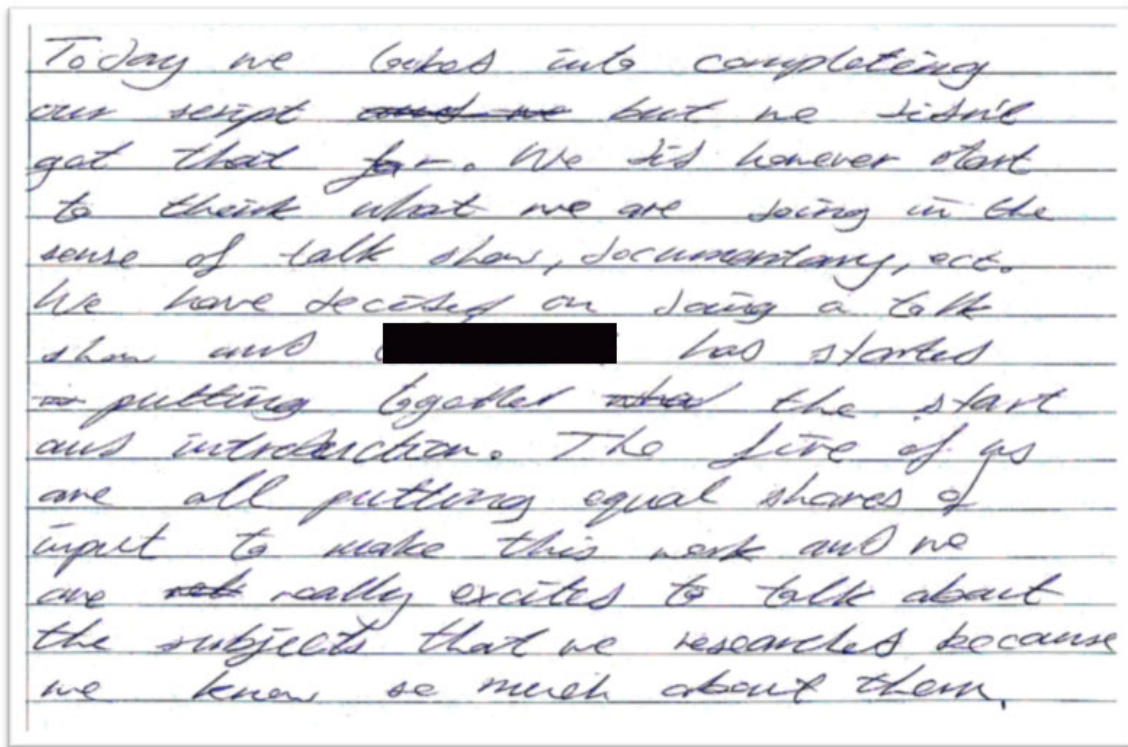 Today we looked into completing
our script and we but we didn't
get that far. We did however start
to think what we are doing in the
sense of talk show, documentary, ect.
We have decided on doing a talk
show and has started
putting together the start
and introduction. The five of us
are all putting equal shares of
input to make this work and we
are really excited to talk about
the subjects that we researched because
we know so much about them.